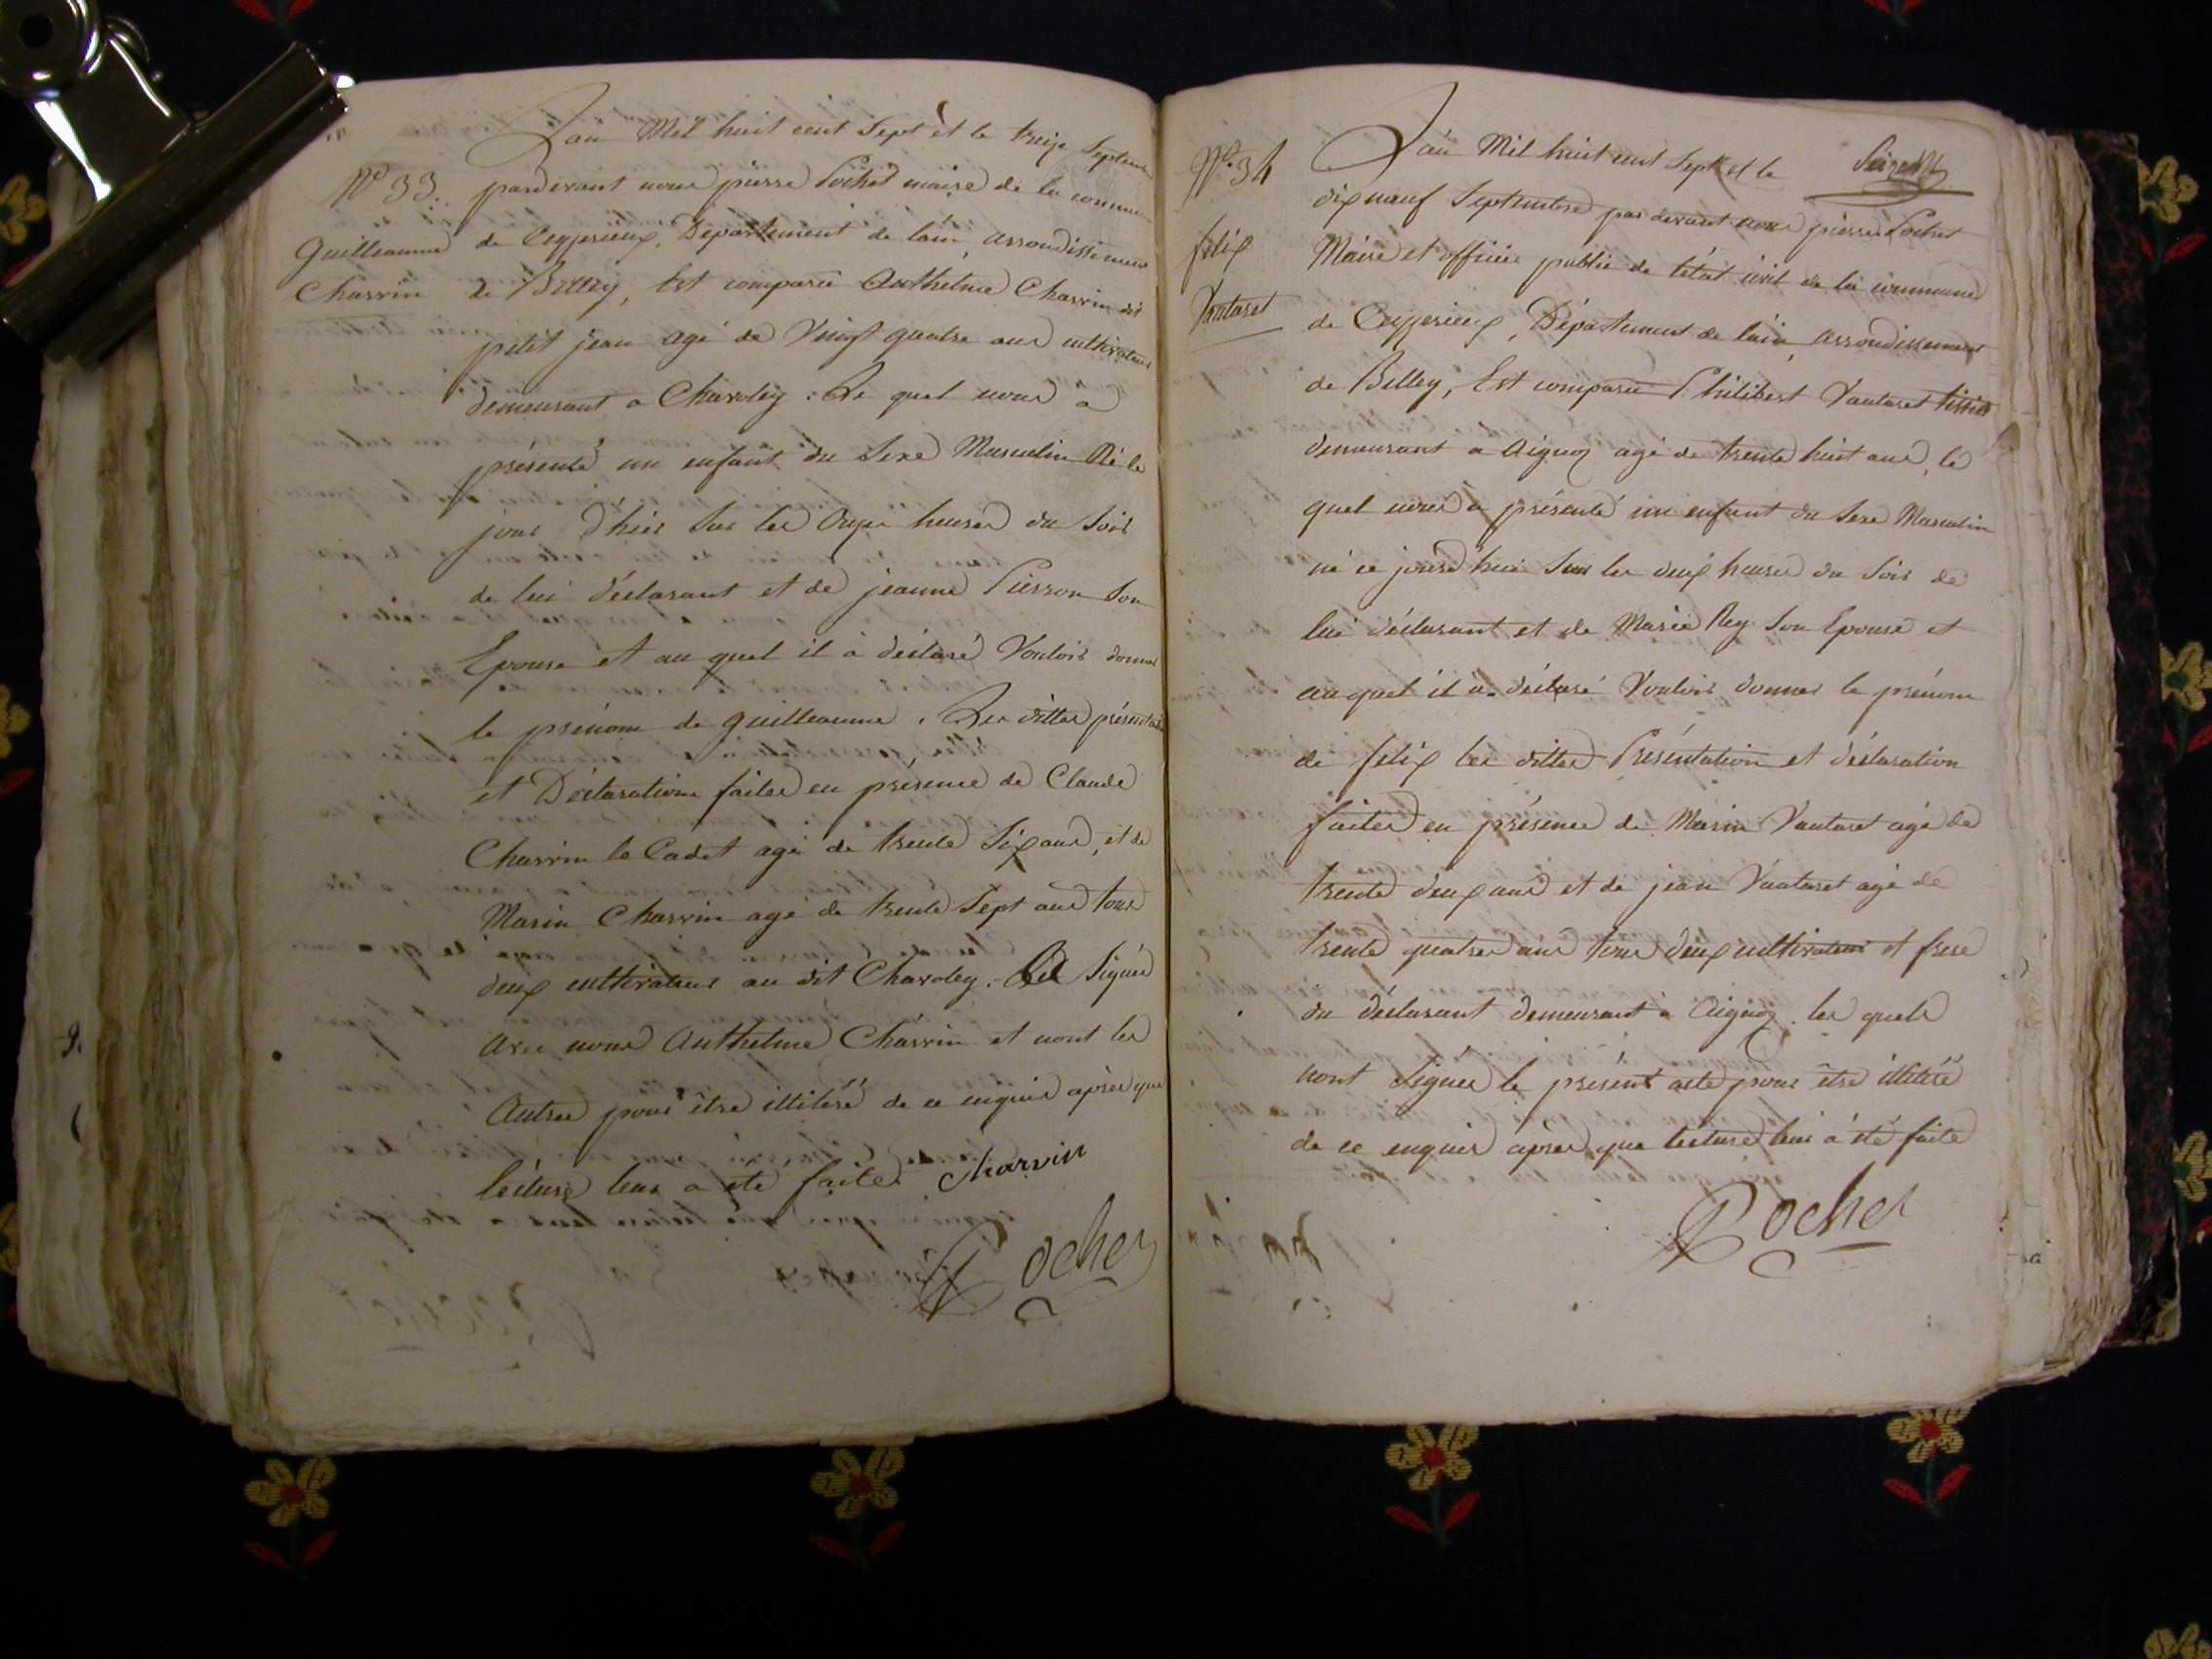 L'an Mil huit cent Sept et le treize Septem
N° 33. pardevant nous pierre Pochet maire de la commu
guilleaume de Ceyzerieux, Département de l'ain, arrondissement
Charvin de Belley, Est comparu Anthelme Charvin dit
petit jean agé de Vingt quatre ans cultivateur
demeurant a Charoley : Le quel nous a
présenté un enfant du Sexe Masculin Né le
jour d'hier Sur les Onze heures du Soir
de lui déclarant et de jeanne Pierron Son
Epouse et au quel il à déclaré Vouloir donner
le prénom de guilleaume. Les dittes présentation
et Déclarations faites en présence de Claude
Charvin le Cadet agé de trente Six ans, et de
Marin Charvin agé de trente Sept ans tous
deux cultivateurs au dit Charoley. Signés
avec nous Anthelme Charvin et nont les
Autres pour être illiteré de ce enquis après que
lécture leur a été faite Charvin
Pochet
Seize
N° 34 L'an Mil huit cent Sept et le
dix neuf Septembre par devant nous pierre Pochet
felix Maire et officier public de l'état civil de la commune
Vautaret de Ceyzerieux, Département de l'ain, arrondissement
de Belley, Est comparu Philibert Vautaret tissier
demeurant a Aignoz agé de trente huit ans, le
quel nous a présenté un enfant du Sexe Masculin
né ce jourd'hui Sur les deux heures du Soir de
lui déclarant et de Marie Rey Son Epouse et
auquel il a déclaré Vouloir donner le prénom
de felix les dittes Présentation et déclaration
faites en présence de Marin Vautaret agé de
trente deux ans et de jean Vautaret agé de
trente quatre ans tous deux cultivateurs et frere
du déclarant demeurant à Aignoz les quels
nont Signés le présent acte pour être illiteré
de ce enquis après que lécture leur à été faite
Pochet